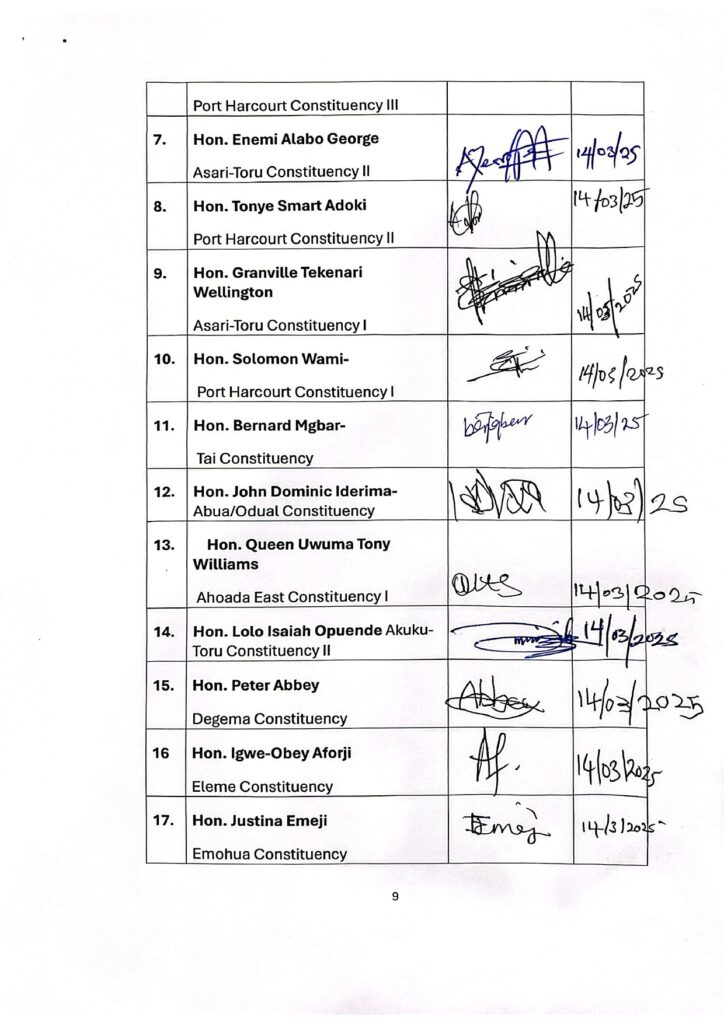 Port Harcourt Constituency III
7. Hon. Enemi Alabo George 14/03/25
Asari-Toru Constituency II
8. Hon. Tonye Smart Adoki 14/03/25
Port Harcourt Constituency II
9. Hon. Granville Tekenari
Wellington
Asari-Toru Constituency I 14/03/2025
10. Hon. Solomon Wami- 14/03/2025
Port Harcourt Constituency I
11. Hon. Bernard Mgbar- 14/03/25
Tai Constituency
12. Hon. John Dominic Iderima- 14/03/25
Abua/Odual Constituency
13. Hon. Queen Uwuma Tony
Williams
Ahoada East Constituency I 14/03/2025
14. Hon. Lolo Isaiah Opuende Akuku- 14/03/2025
Toru Constituency II
15. Hon. Peter Abbey Abbey 14/03/2025
Degema Constituency
16 Hon. Igwe-Obey Aforji 14/03/2025
Eleme Constituency
17. Hon. Justina Emeji Emeji 14/3/2025
Emohua Constituency
9